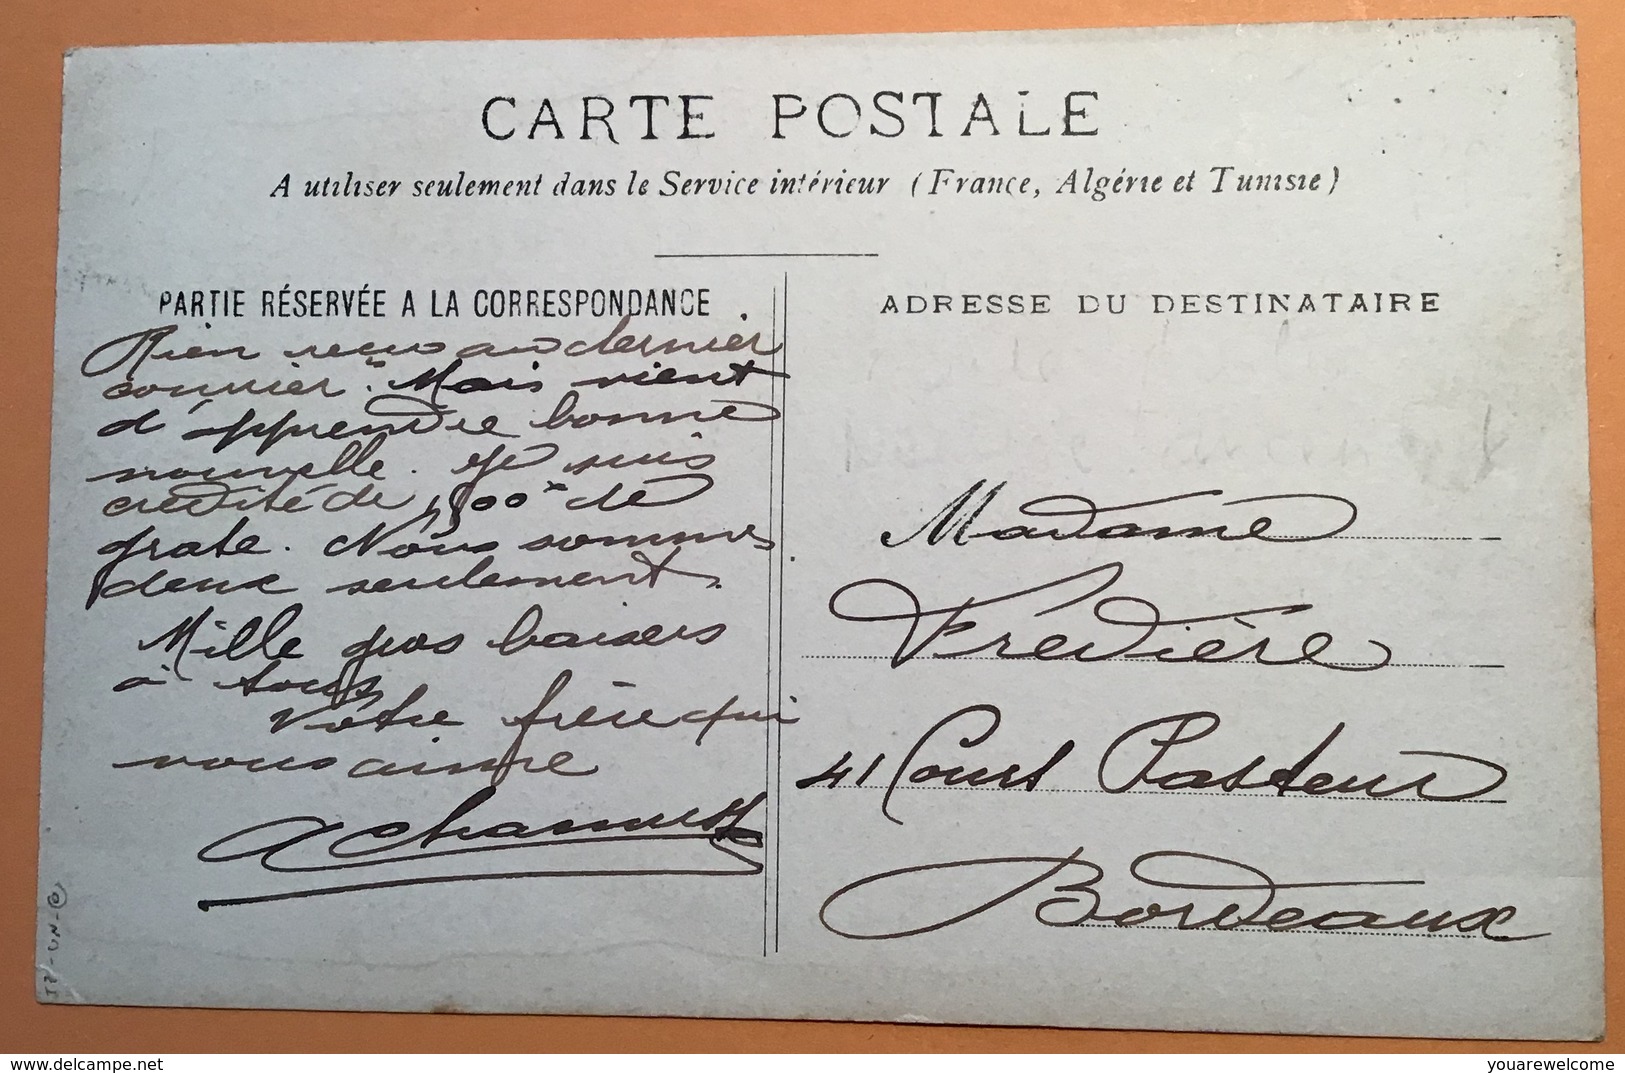 CARTE POSTALE
A utiliser seulement dans le Service intérieur (France, Algérie et Tunisie)
PARTIE RÉSERVÉE A LA CORRESPONDANCE
Rien reçu au dernier
courrier. Mais vient
d'apprendre bonne
nouvelle. Je suis
credité de 500 de
grate. Nous sommes
deux seulement.
Mille gros baisers
à tous
Votre frère qui
vous aime
ADRESSE DU DESTINATAIRE
Madame
Fredière
41 Court Pasteur
Bordeaux
delcampe.net
youarewelcome